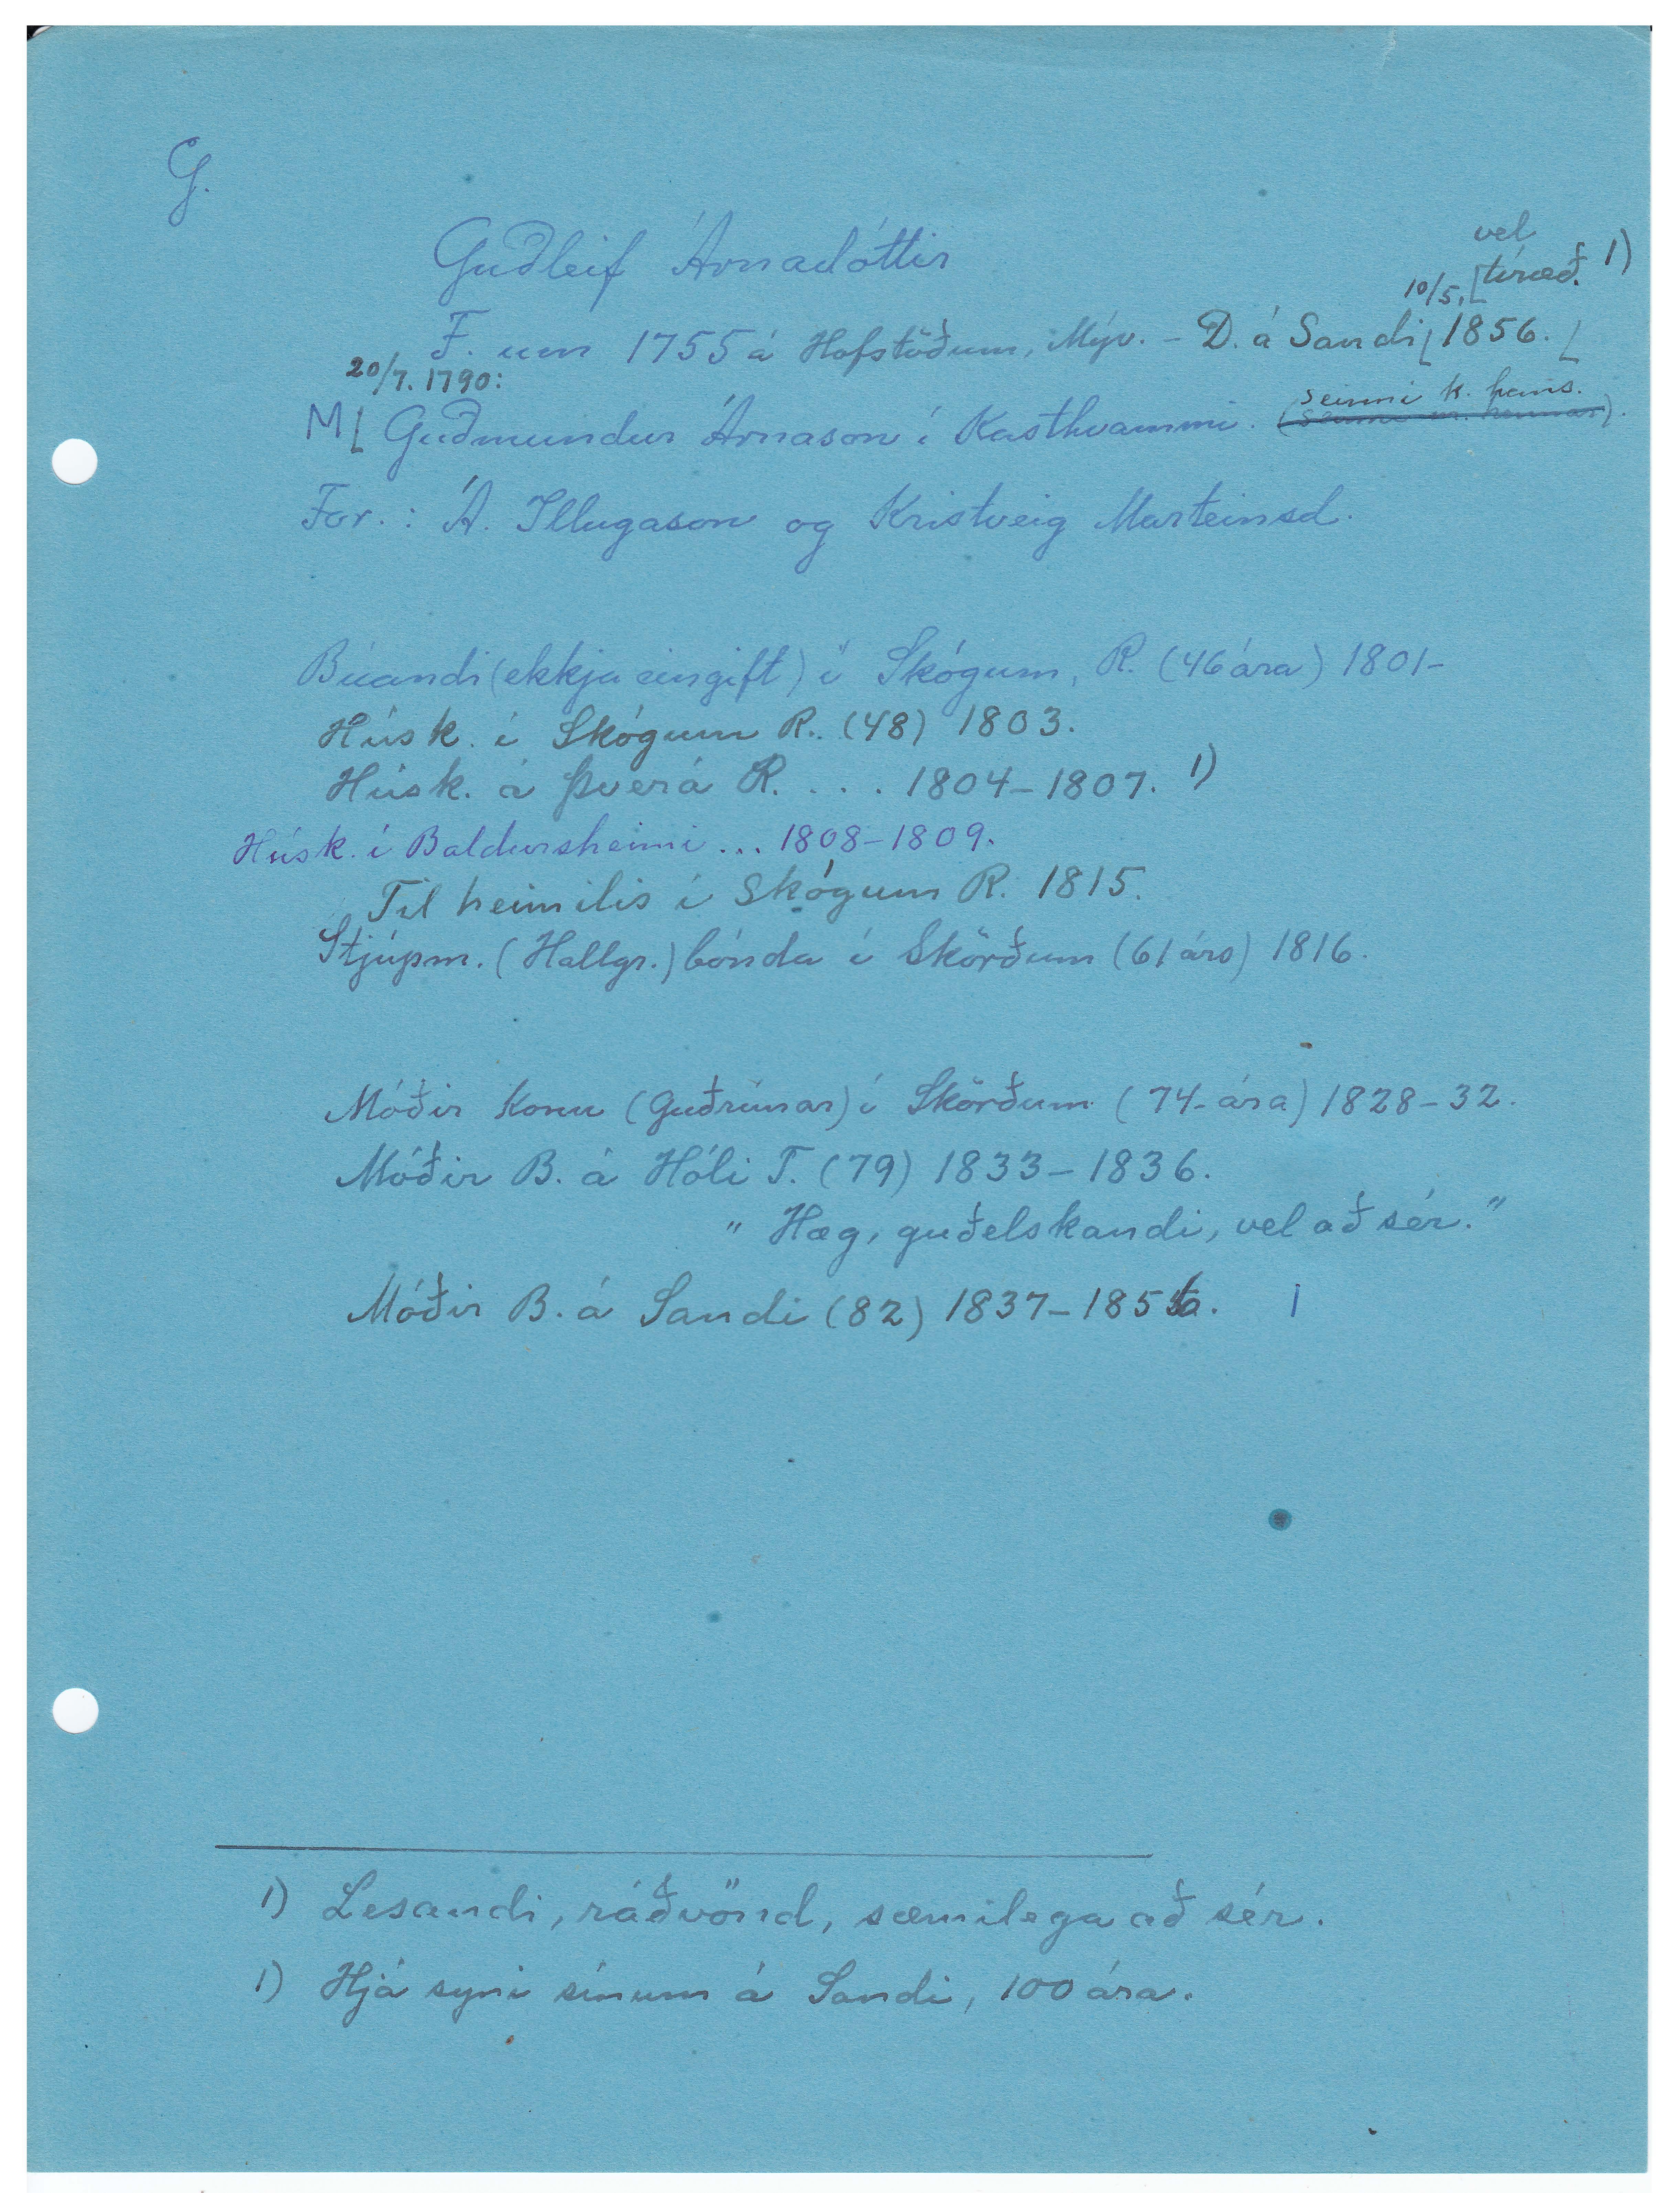 G.
Guðleif Árnadóttir
vel
10/5. [tíræð. 1)
F. um 1755 á Hofstöðum, Mýv. - D. á Sandi [ 1856. [
20/7. 1790:
seinni k. hans.
M[ Guðmundur Árnason í Kasthvammi. (seinni m. hennar).
For. : Á. Illugason og Kristveig Marteinsd.
Búandi (ekkja eingift) í Skógum, R. (46 ára) 1801-
Húsk. í Skógum R. (48) 1803.
Húsk. á Þverá R. . . . 1804-1807. 1)
Húsk. í Baldursheimi ... 1808-1809.
Til heimilis í Skógum R. 1815.
Stjúpm. (Hallgr.) bónda í Skörðum (61 árs) 1816.
Móðir konu (Guðrúnar) í Skörðum (74-ára) 1828-32.
Móðir B. á Hóli T. (79) 1833-1836.
" Hæg, guðelskandi, vel að sér."
Móðir B. á Sandi (82) 1837-1856.
1) Lesandi, ráðvönd, sæmilega að sér.
1) Hjá syni sínum á Sandi, 100 ára.